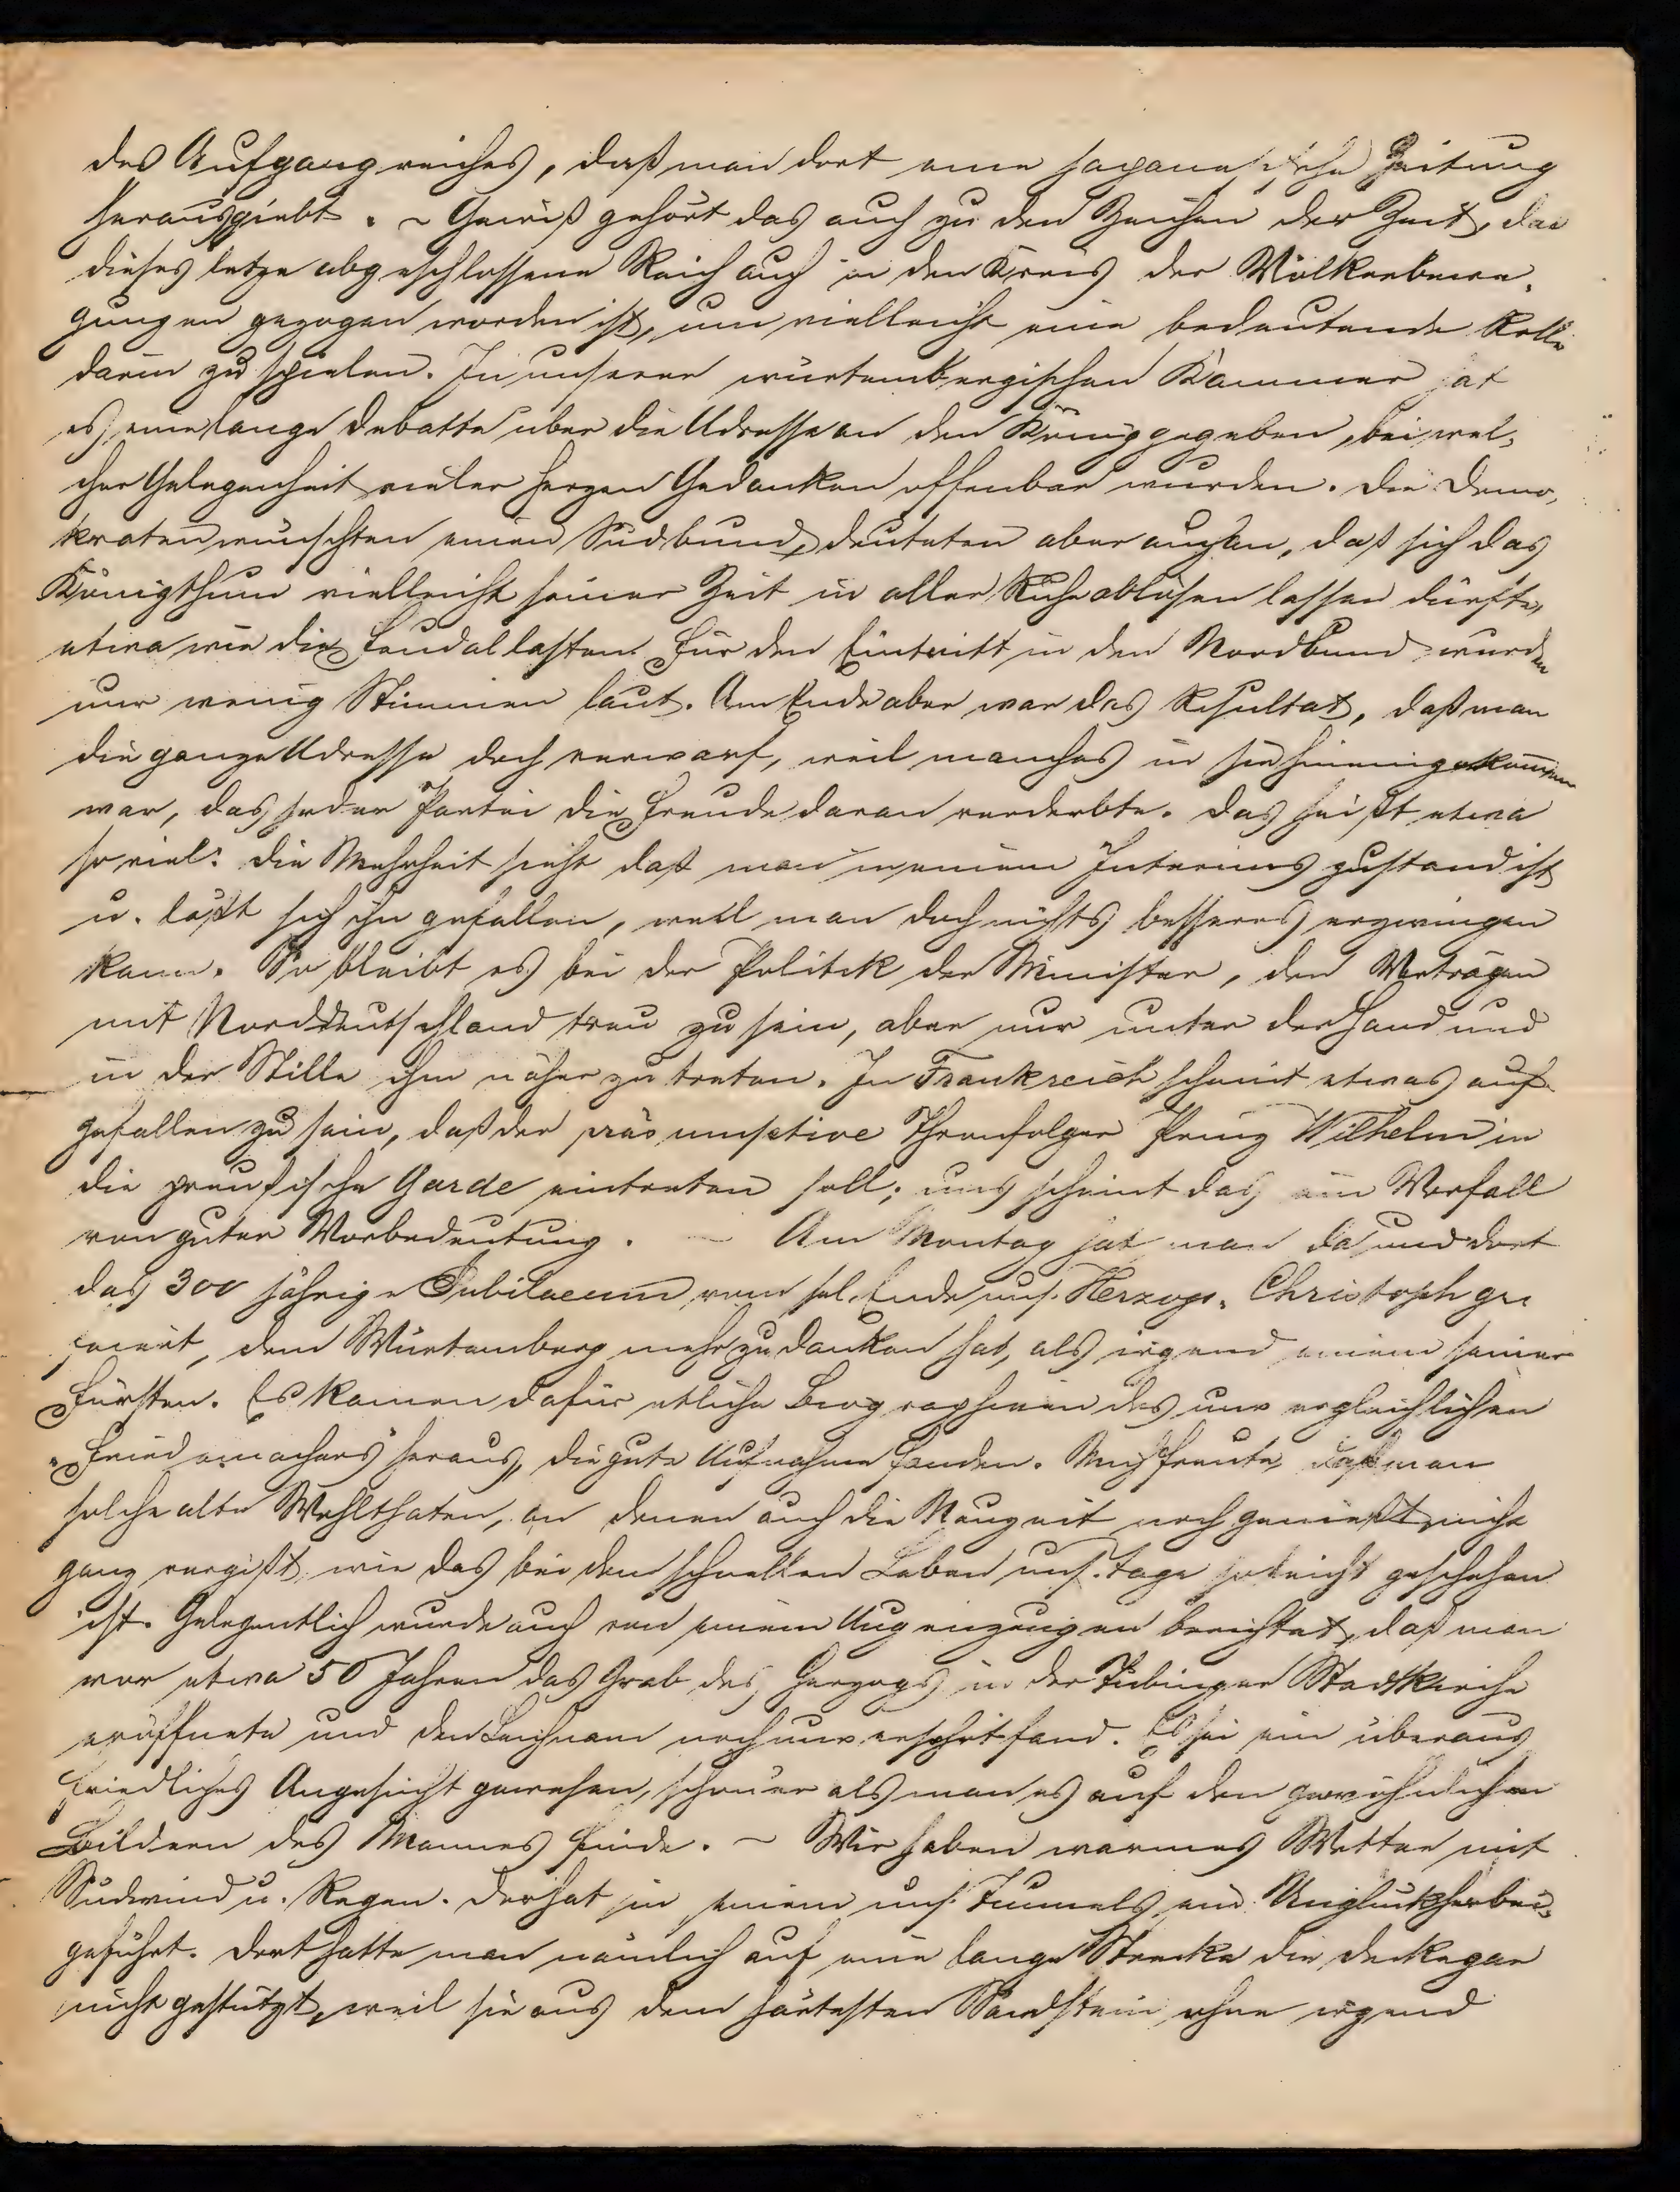 des Aufgangreiches, daß man dort eine japanesische Zeitung
herausgiebt. ~ Gewiß gehört das auch zu den Zeichen der Zeit, das
dieses letze abgeschlossene Reich auch in den Kreis der Völkerbewe,
gungen gezogen worden ist, um vielleicht eine bedeutende Rolle
darin zu spielen. In unserer würtembergischen Kammer hat
es eine lange Debatte über die Adresse an den König gegeben, bei wel,
cher Gelegenheit vieler Herzen Gedanken offenbar wurden. Die Demo,
kraten wünschten einen Südbund, deuteten aber auch an, daß sich das
Königthum vielleicht seiner Zeit in aller Ruhe ablösen lassen dürfte,
etwa wie die Feudallasten. Für den Eintritt in den Nordbund wurden
nur wenig Stimmen laut. Am Ende aber war das Resultat, daß man
die ganze Adresse doch verwarf, weil manches in sie hineingekommen
war, das jeder Partei die Freude daran verderbte. Das heißt etwa
so viel: die Mehrheit sieht daß man in einem Interimszustand ist
u. läßt sich ihn gefallen, weil man doch nichts besseres erzwingen
kann. So bleibt es bei der Politik der Minister, den Verträgen
mit Norddeutschland treu zu sein, aber nur unter der Hand und
in der Stille ihm näher zu treten. In Frankreich scheint etwas auf
gefallen zu sein, daß der präsumptive Thronfolger Prinz Wilhelm in
die preußische Garde eintreten soll; uns scheint das ein Vorfall
von guter Vorbedeutung. — Am Montag hat man da und dort
das 300 jährige Jubilaeum vom sel. Ende uns. Herzogs Christoph ge
feiert, dem Würtemberg mehr zu danken hat, als irgend einem seiner
Fürsten. Es kamen dafür etliche Biographieen des unvergleichlichen
"Friedemachers" heraus, die gute Aufnahme fanden. Mich freute, daß man
solche alte Wohlthaten, an denen auch die Neuzeit noch genießt, nicht
ganz vergißt, wie das bei dem schnellen Leben uns. Tage so leicht geschehen
ist. Gelegentlich wurde auch von einem Augenzeugen berichtet, daß man
vor etwa 50 Jahren das Grab des Herzogs in der Tübinger Stadtkirche
eröffnete und den Leichnam noch unversehrt fand. Es sei ein überaus
friedliches Angesicht gewesen, schöner als man es auf den gewöhnlichen
Bildern des Mannes finde. ~ Wir haben warmes Wetter mit
Südwind u. Regen. Der hat in einem uns. Tunnels ein Unglück herbei,
geführt. Dort hatte man nämlich auf eine lange Strecke die Decke gar
nicht gestützt, weil sie aus dem härtesten Sandstein, ohne irgend